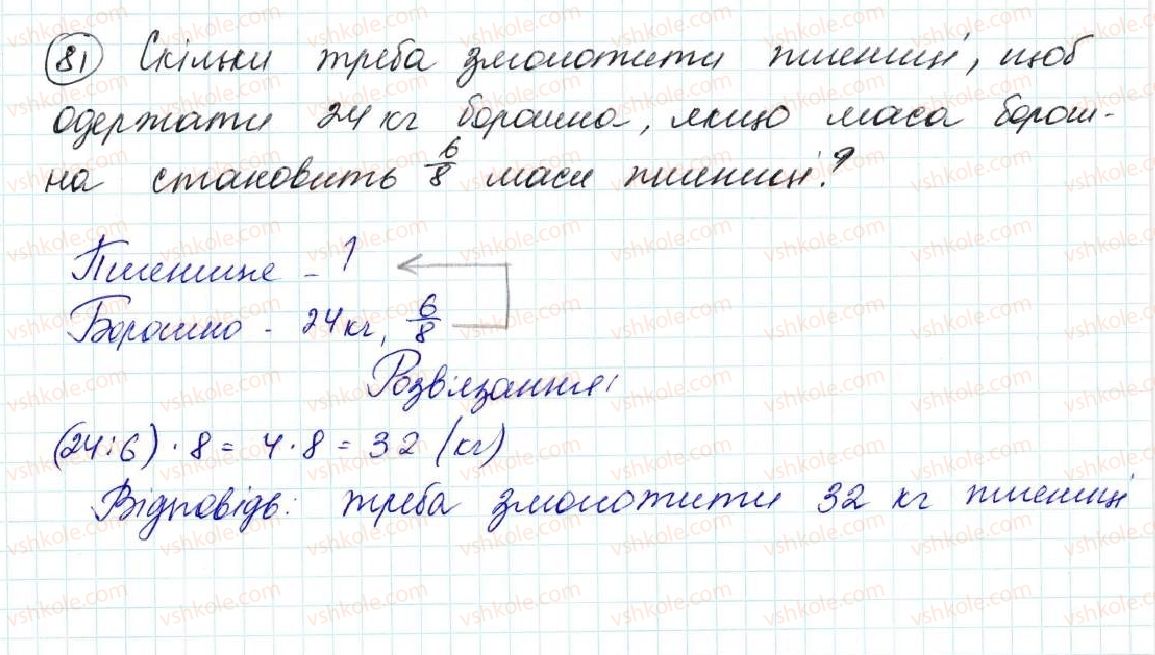 81 Скільки треба змолотити пшениці, щоб
одержати 24 кг борошна, якщо маса борош-
на становить 6/8 маси пшениці?
Пшениця - 1
Борошно - 24 кг, 6/8
Розв'язання:
(24:6) · 8 = 4 · 8 = 32 (кг)
Відповідь: треба змолотити 32 кг пшениці
vshkole.com